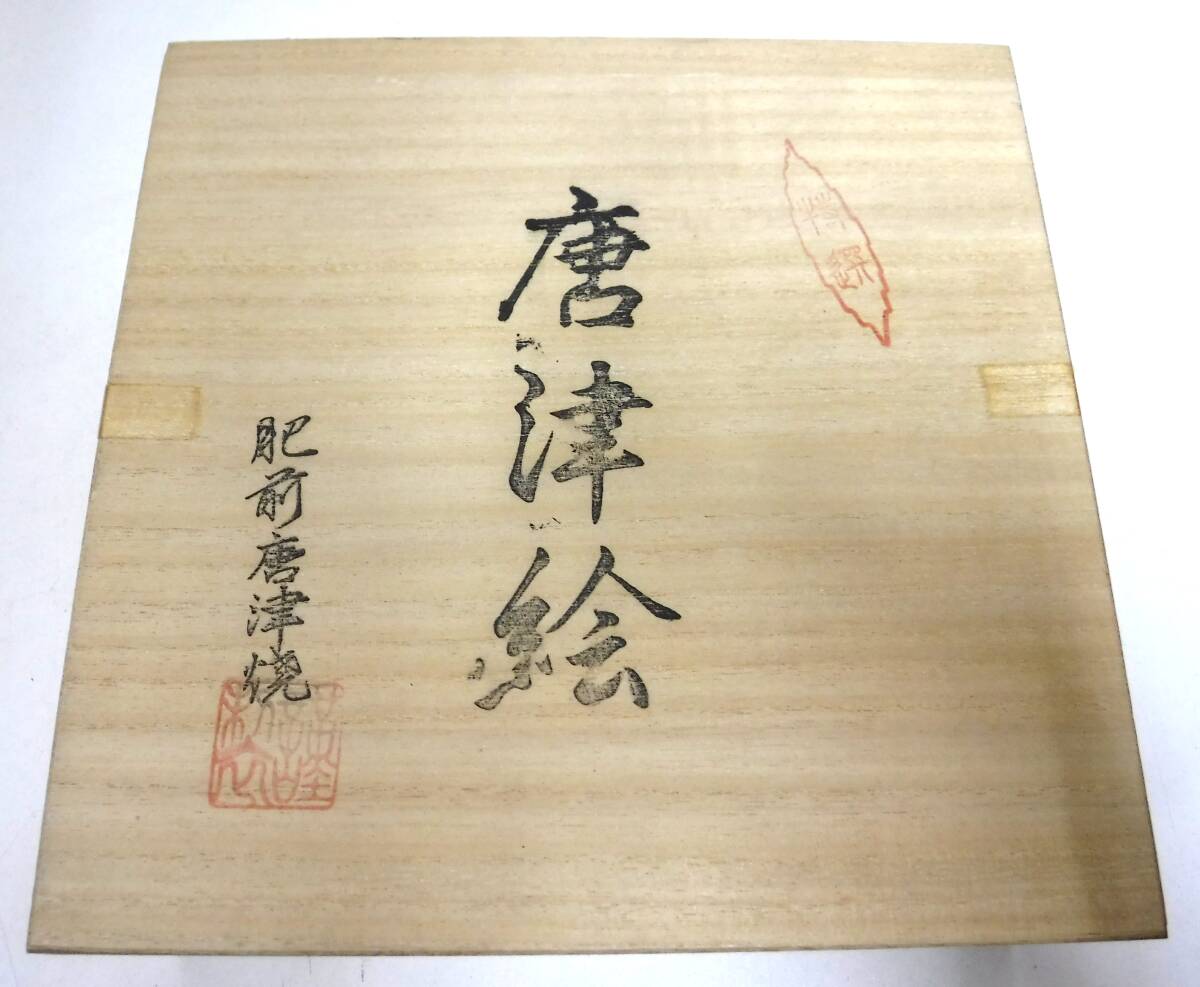 特選
唐津絵
肥前唐津焼